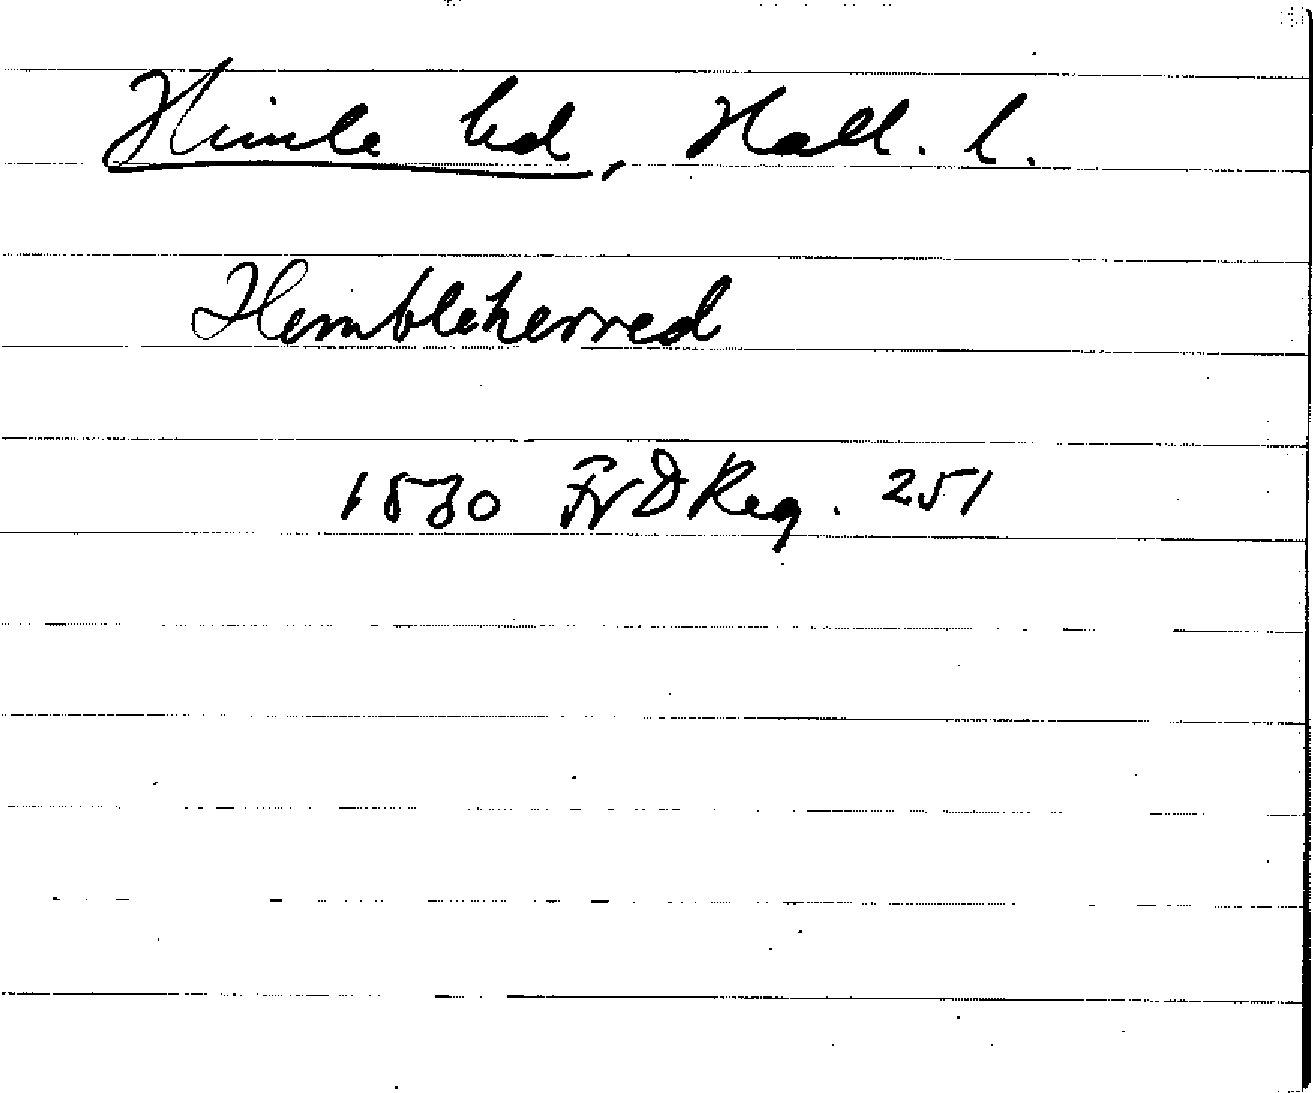 Himle hd, Hall. l.
Hembleherred
1530 FrDReg. 251